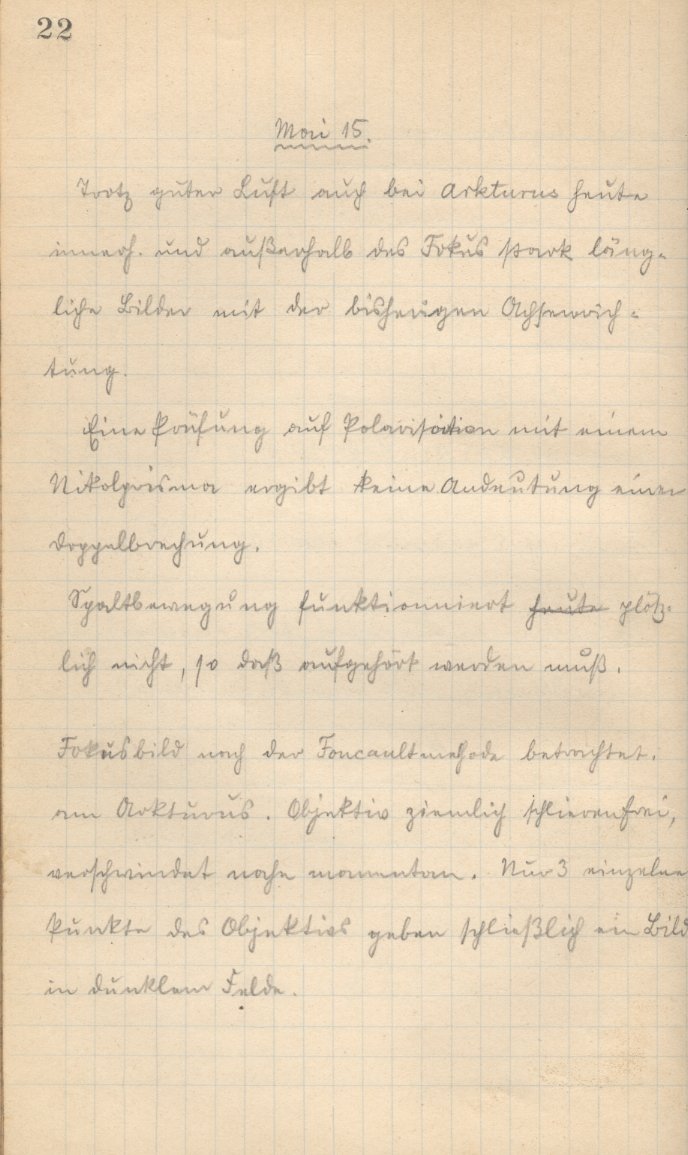 22
Mai 15.
Trotz guter Luft auch bei Arkturus heute
innerh. und außerhalb des Fokus stark läng-
liche Bilder mit der bisherigen Achsenrich-
tung.
Eine Prüfung auf Polarisation mit einem
Nikolprisma ergibt keine Andeutung einer
Doppelbrechung.
Spaltbewegung funktionniert heute plötz-
lich nicht, so daß aufgehört werden muß.
Fokusbild nach der Foucaultmethode betrachtet.
am Arkturus. Objektiv ziemlich schlierenfrei,
verschwindet nahe momentan. Nur 3 einzelne
Punkte des Objektivs geben schließlich ein Bild
in dunklem Felde.